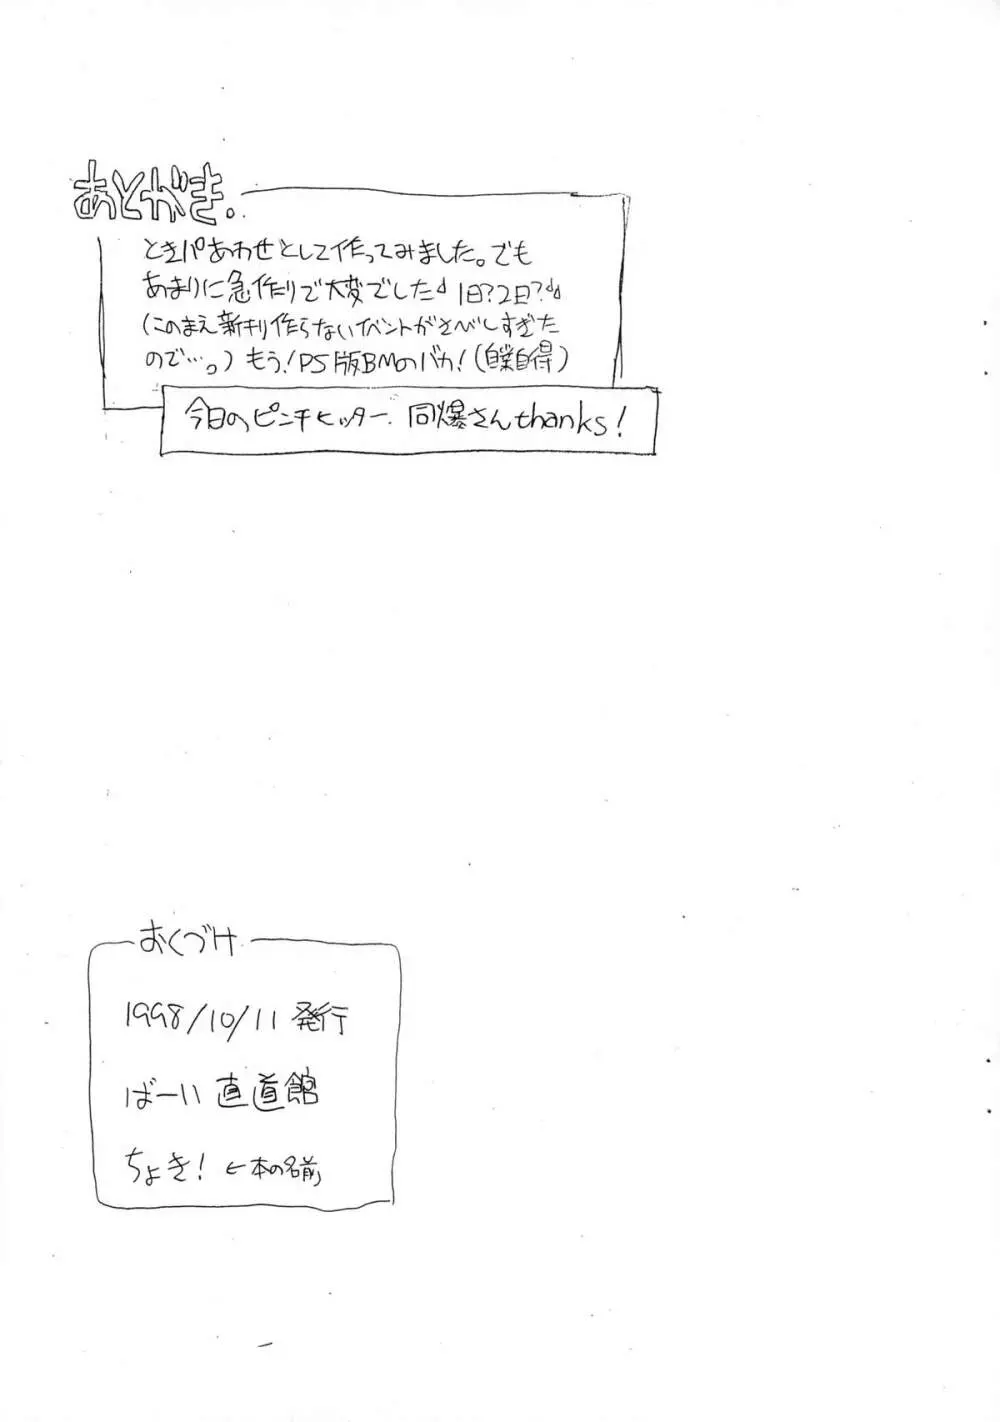 あとがき。
ときパあわせとして作ってみました。でも
あまりに急作りで大変でした 1日?2日?
(このまえ新刊作らないイベントがさべしすぎた
ので…っ) もう!PS版BMのバカ!(自業自得)
今日のピンチヒッター 同爆さんthanks!
おくづけ
1998/10/11 発行
ばーい 直道館
ちょき! ←本の名前